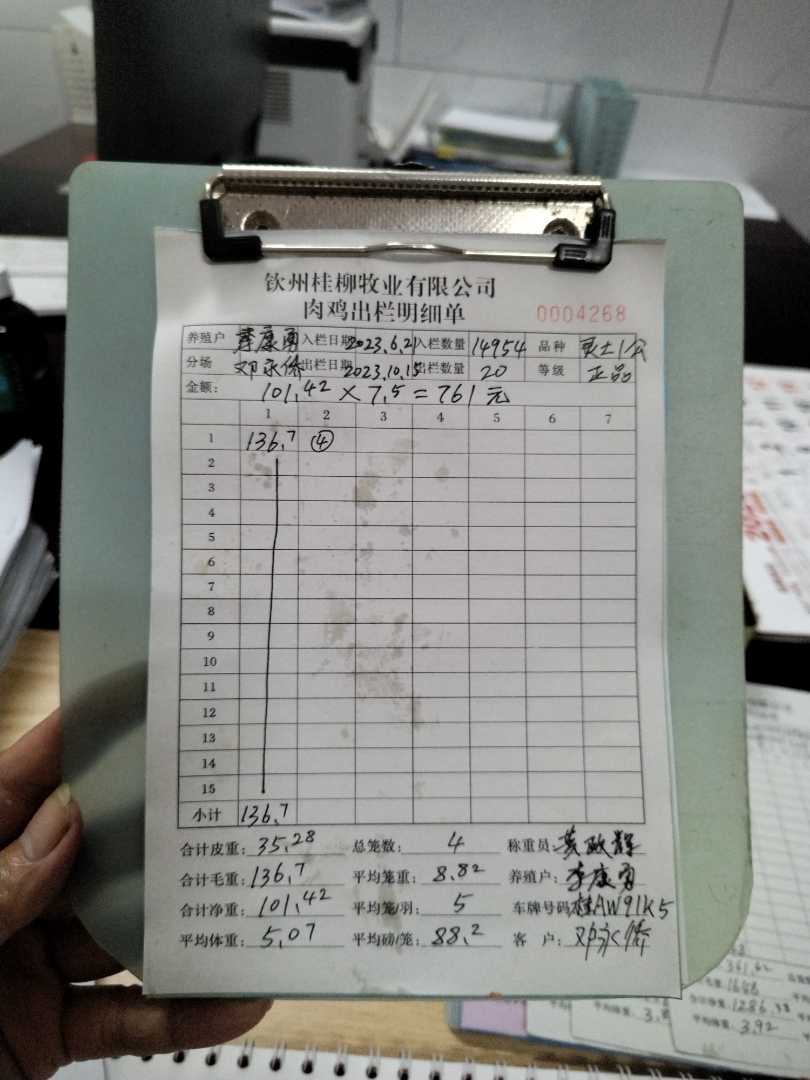 钦州桂柳牧业有限公司
肉鸡出栏明细单 0004268
养殖户 李康勇 入栏日期 2023.6.21 入栏数量 14954 品种 灵土1公
分场 邓永侨 出栏日期 2023.10.15 出栏数量 20 等级 正品
金额: 101.42 × 7.5 = 761 元
1 2 3 4 5 6 7
1 136.7 ④
2
3
4
5
6
7
8
9
10
11
12
13
14
15
小计 136.7
合计皮重: 35.28 总笼数: 4 称重员: 黄政辉
合计毛重: 136.7 平均笼重: 8.82 养殖户: 李康勇
合计净重: 101.42 平均笼/羽: 5 车牌号码: 桂AW91K5
平均体重: 5.07 平均磅/笼: 88.2 客 户: 邓永侨
1286.38
3.92